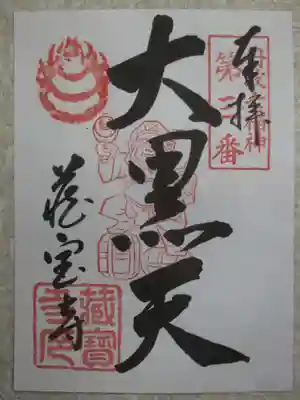 奉拝
第三番
大黒天
蔵宝寺
藏寶寺印